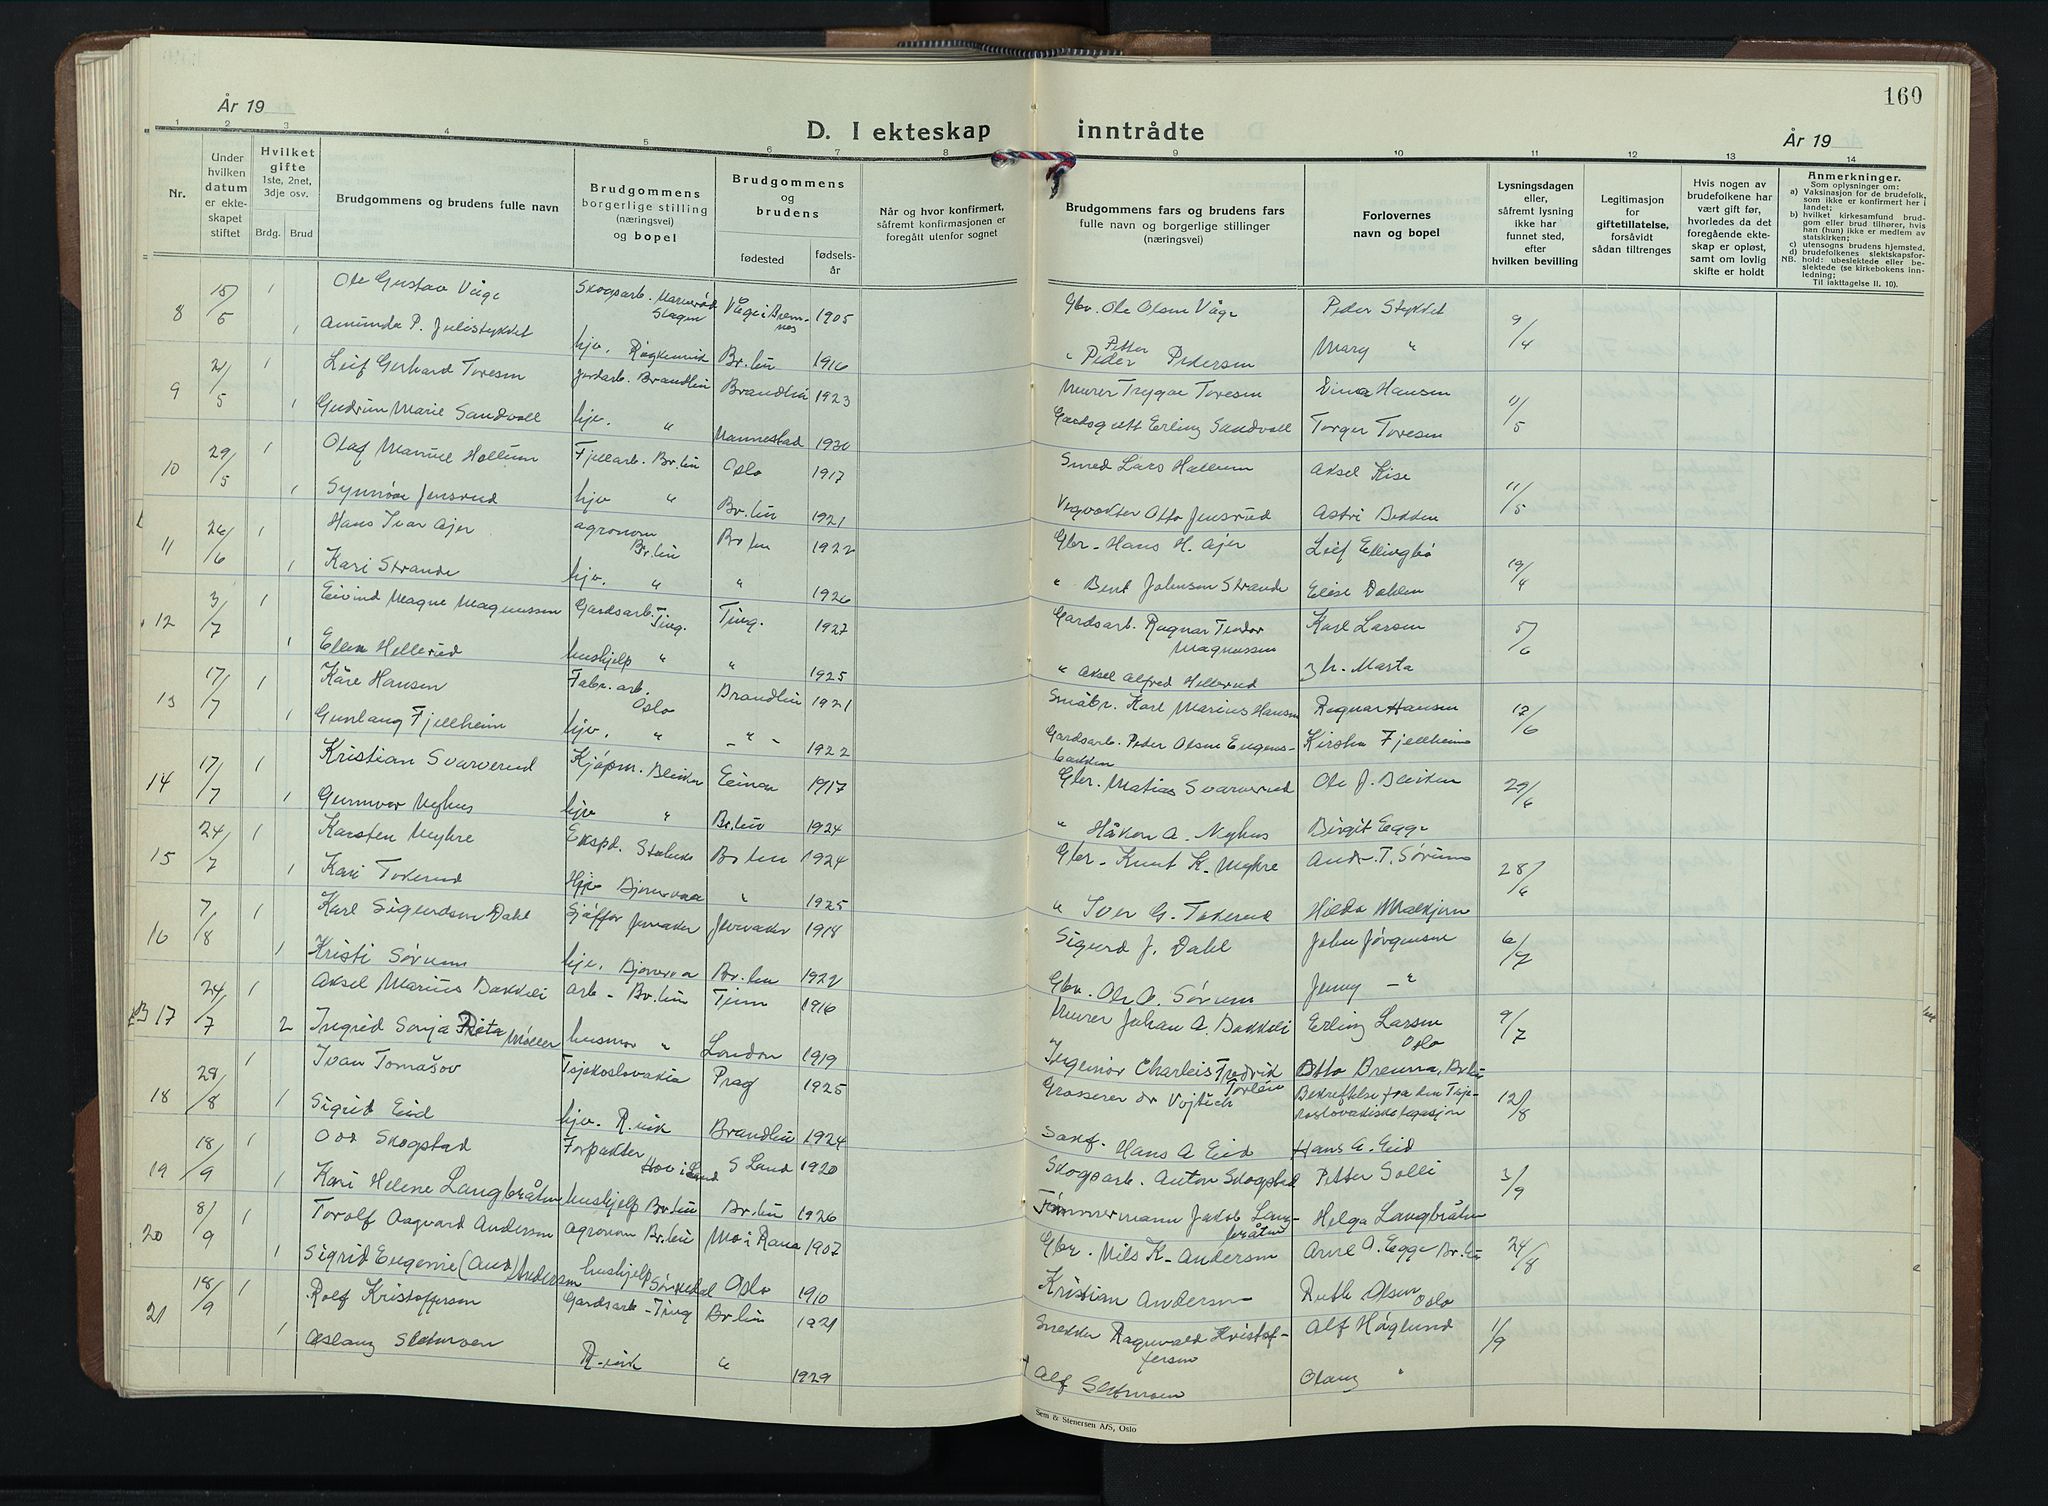 160
År 19
År 19
D. I ekteskap inntrådte
1 2 3 4 5 6 7 8 9 10 11 12 13 14
Nr.
Under hvilken datum er ekteskapet stiftet
Hvilket gifte 1ste, 2net, 3dje osv.
Brdg. Brud
Brudgommens og brudens fulle navn
Brudgommens borgerlige stilling (næringsvei) og bopel
Brudgommens og brudens
fødested
fødsels-år
Når og hvor konfirmert, såfremt konfirmasjonen er foregått utenfor sognet
Brudgommens fars og brudens fars fulle navn og borgerlige stillinger (næringsvei)
Forlovernes navn og bopel
Lysningsdagen eller, såfremt lysning ikke har funnet sted, efter hvilken bevilling
Legitimasjon for giftetillatelse, forsåvidt sådan tiltrenges
Hvis nogen av brudefolkene har vært gift før, hvorledes da det foregående ekteskap er opløst, samt om lovlig skifte er holdt
Anmerkninger.
Som oplysninger om:
a) Vaksinasjon for de brudefolk, som ikke er konfirmert her i landet;
b) hvilket kirkesamfund brudgom eller brud tilhører, hvis han (hun) ikke er medlem av statskirken;
c) utensogns brudens hjemsted.
d) brudefolkenes slektskapsforhold: ubeslektede eller beslektede (se kirkebokens innledning;
NB. Til iakttagelse II, 10).
8 15/5 1 Ole Gustav Våge Skogsarb. Slagen Våge i Bremnes 1905 Gbr. Ole Olsen Våge Peder Stykket 9/4
1 Amunda P. Julistykket hjv. Røykenvik Br.bu 1916 " Petter Peder Pedersen Mary "
9 21/5 1 Leif Gerhard Toresen Jordarb. Brandbu Brandbu 1923 Murer Trygve Toresen Dina Hansen 11/5
1 Gudrun Marie Sandvoll hjv. " Mannestad 1930 Gardsgutt Erling Sandvoll Torger Toresen
10 29/5 1 Olaf Manuel Hollum Fjellarb. Br.bu Oslo 1917 Smed Lars Hollum Aksel Kise 11/5
1 Synnøve Jensrud hjv " Br.bu 1921 Vegvokter Otto Jensrud Astri Bekken
11 26/6 1 Hans Ivar Ajer agronom Br.bu Br.bu 1922 Gbr. Hans H. Ajer Leif Ellingbø 19/4
1 Kari Strande hjv. " " 1926 " Bent Johnsen Strande Elise Dahlen
12 3/7 1 Eivind Magne Magnussen Gardsarb. Ting. Ting. 1927 Gardsarb. Ragnar Teodor Magnussen Karl Larsen 5/6
1 Ellen Hellerud hushjelp " " 1925 " Aksel Alfred Hellerud " Marta
13 17/7 1 Kåre Hansen Fabr.arb. Oslo Brandbu 1921 Småbr. Karl Marius Hansen Ragnar Hansen 12/6
1 Gunlaug Fjellheim hjv. " - " - 1922 Gardsarb. Peder Olsen Eugensbakken Kirsten Fjellheim
14 17/7 1 Kristian Svarverud Kjøpm. Bleiken Eina 1917 Gbr. Matias Svarverud Ole J. Bleiken 29/6
1 Gunnvor Nyhus hjv " Br.bu 1924 " Håkon A. Nyhus Birgit Egge
15 24/7 1 Karsten Myhre Ekspd. Br.bu 1924 Gbr. Knut K. Myhre Andr. T. Sørum 28/6
1 Kari Tokerud Hjv Bjoneroa " 1925 " Iver G. Tokerud Hilda
16 7/8 1 Karl Sigurdsen Dahl Sjåffør Jevnaker Jevnaker 1918 Sigurd J. Dahl John Jørgensen 6/7
1 Kristi Sørum hjv. Bjoneroa Br.bu 1922 Gbr. Ole A. Sørum Jenny - "
17 24/7 1 Aksel Marius Bakkeli arb. Br.bu Tinn 1916 Murer Johan A. Bakkeli Erling Larsen Oslo 9/7
2 Ingrid Sonja Rita Møller husmor " London 1919 " Ingeniør Charles Fredrik Otto Brenna, Br.bu
18 28/8 1 Ivan Tomašov Tsjekoslovakia Prag 1925 Grosserer dr Vojtiech Bekreftelse fra den Tsjekoslovakiske legasjon 12/8
1 Sigrid Eid hjv. R.vik Brandbu 1924 Hans A Eid Hans A. Eid
19 18/9 1 Odd Skogstad Forpakter Hov i Land S Land 1920 Skogsarb. Anton Skogstad Petter Solli 3/9
1 Kari Helene Langbråten hushjelp Br.bu Br.bu 1926 Tømmermann Jakob Langbråten Helga Langbråten
20 8/9 1 Torolf Aagvard Andersen agronom Br.bu Mo i Rana 1907 Gbr. Nils K. Andersen Arne A. Egge Br.bu 24/8
1 Sigrid Eugenie (Aud) Andersen hushjelp Sørkedal Oslo 1910 Kristian Andersen Ruth Olsen Oslo
21 18/9 1 Rolf Kristoffersen Gardsarb. Ting Br.bu 1921 Snekker Ragnvald Kristoffersen Alf Høglund 1/9
1 Aslaug Sletmoen R.vik " 1929 Alf Sletmoen Olaug "
Sem & Stenersen A/S, Oslo